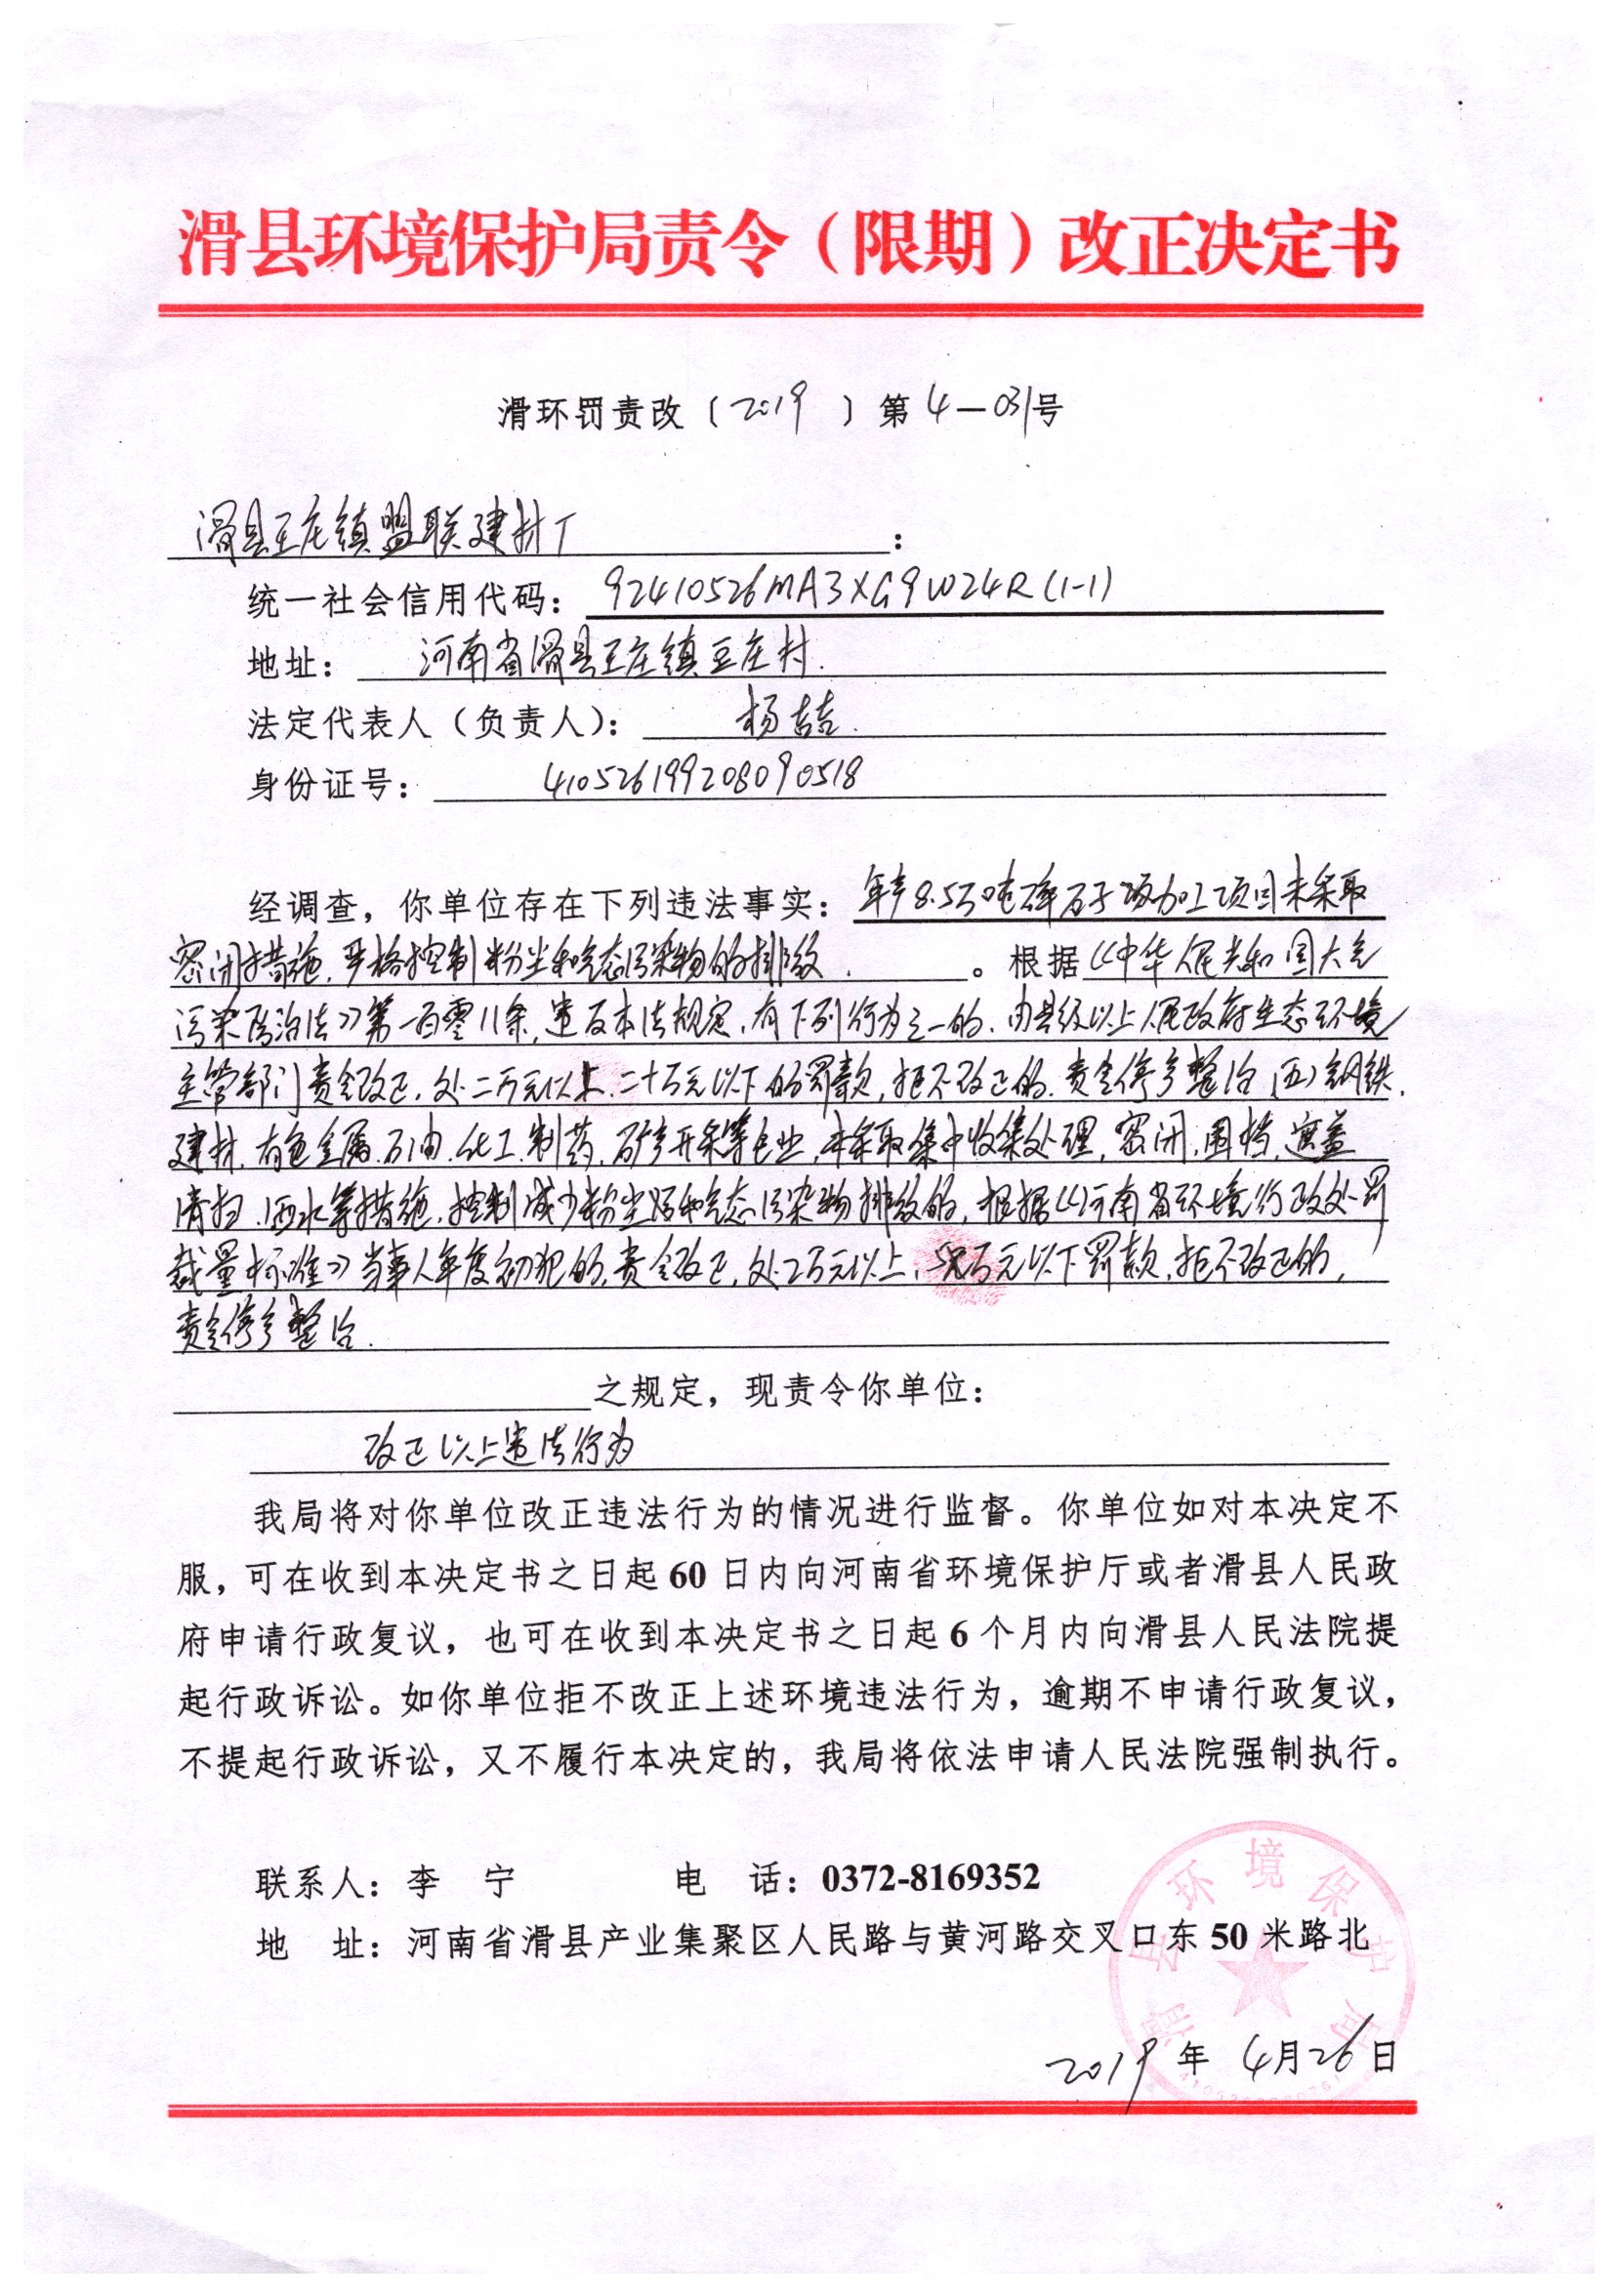 滑县环境保护局责令（限期）改正决定书
滑环罚责改〔2019〕第4-031号
滑县王庄镇盟联建材厂：
统一社会信用代码：92410526MA3XG9W24R(1-1)
地址：河南省滑县王庄镇王庄村.
法定代表人（负责人）：杨喆.
身份证号：410526199208090518
经调查，你单位存在下列违法事实：年产8.5万吨碎石子项加工项目未采取
密闭措施，严格控制粉尘和气态污染物的排放.。根据《中华人民共和国大气
污染防治法》第一百零八条，违反本法规定，有下列行为之一的，由县级以上人民政府生态环境
主管部门责令改正，处二万元以上二十万元以下的罚款，拒不改正的，责令停产整治（五）钢铁、
建材、有色金属、石油、化工、制药、矿产开采等企业，未采取集中收集处理，密闭，围挡，遮盖
清扫、洒水等措施，控制减少粉尘和气态污染物排放的，根据《河南省环境行政处罚
裁量标准》当事人年度初犯的，责令改正，处2万元以上，万元以下罚款，拒不改正的，
责令停产整治.
之规定，现责令你单位：
改正以上违法行为
我局将对你单位改正违法行为的情况进行监督。你单位如对本决定不
服，可在收到本决定书之日起60日内向河南省环境保护厅或者滑县人民政
府申请行政复议，也可在收到本决定书之日起6个月内向滑县人民法院提
起行政诉讼。如你单位拒不改正上述环境违法行为，逾期不申请行政复议，
不提起行政诉讼，又不履行本决定的，我局将依法申请人民法院强制执行。
联系人：李 宁 电 话：0372-8169352
地 址：河南省滑县产业集聚区人民路与黄河路交叉口东50米路北
滑县环境保护局
2019年4月26日